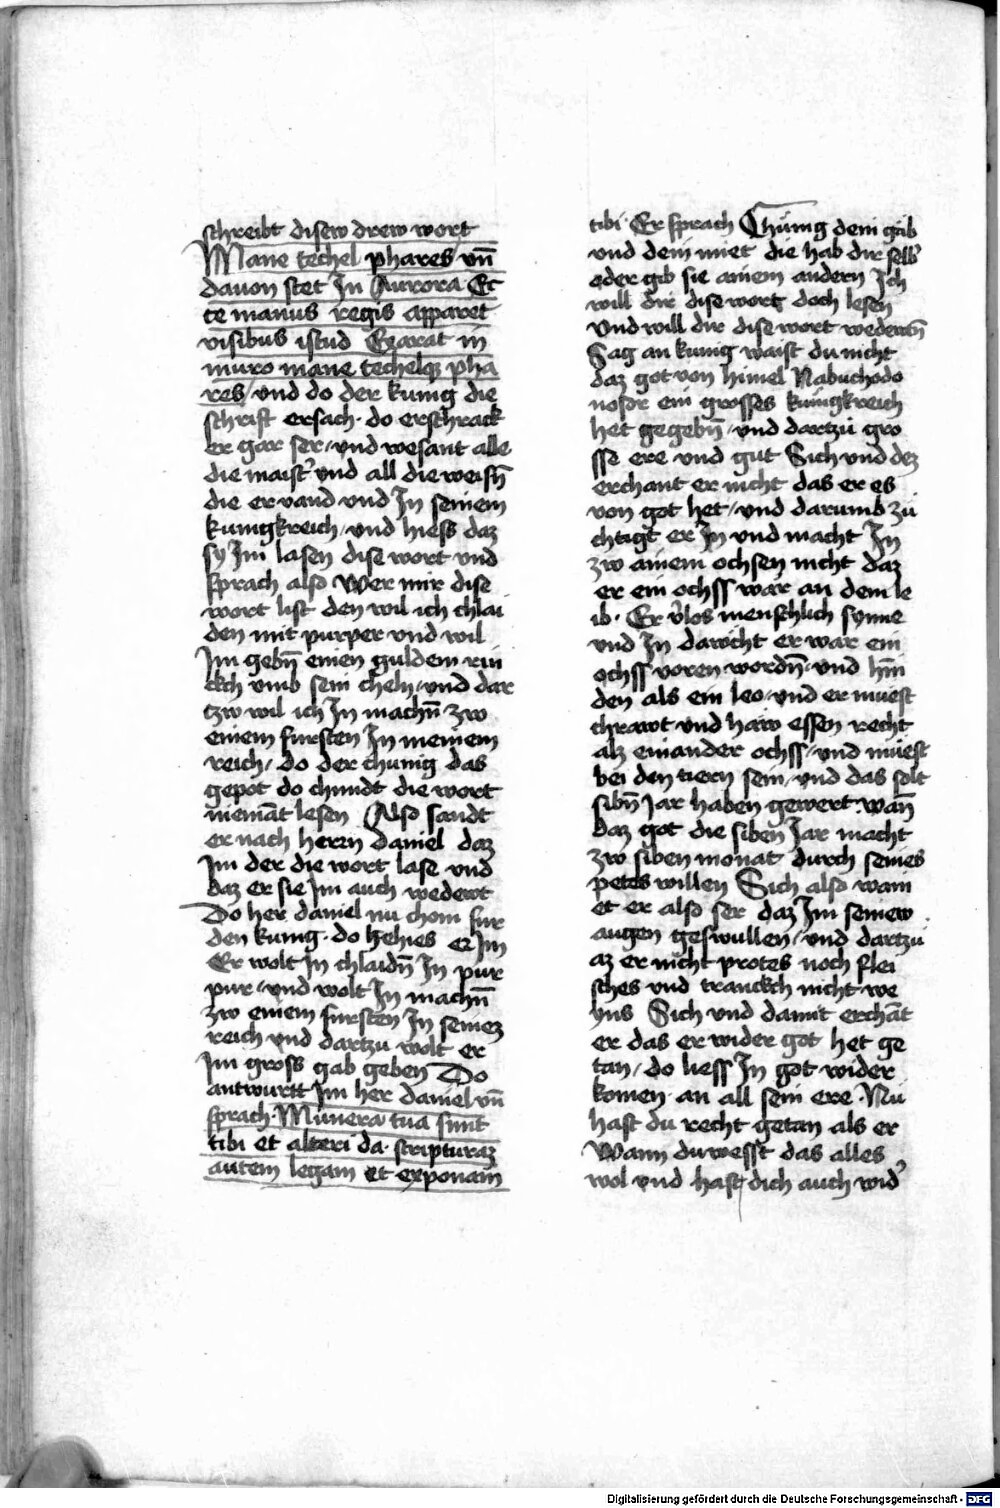 schreibt disew drew wort
Mane techel phares vn̄
dauon stet In Aurora Ec
ce manus regis apparet
visibus istud Exarat in
muro mane techelqz pha
res / vnd do der kunig die
schrift ersach · do erschrack
er gar ser / vnd wesant alle
die maist͛ vnd all die weisn̄
die er vand vnd In seinem
kunigkreich / vnd hiess daz
sy Im lasen dise wort vnd
sprach also Wer mir dise
wort list den wil ich chlai
den mit purper vnd wil
Im gebn̄ einen guldem rin
ckh vmb sein cheln / vnd dar
tzw wil ich In machn̄ zw
einem fursten In meinem
reich / do der chunig das
gepot do chundt die wort
niemāt lesen Also sandt
er nach herrn daniel daz
Im der die wort lase vnd
daz er sie Im auch wedewt
Do her daniel nu chom fur
den kunig · do gehies er Im
Er wolt In chlaidn̄ In pur
pur / vnd wolt In machn̄
zw einem fursten In seinez
reich vnd dartzu wolt er
Im gross gab geben Do
antwurtt Im her daniel vn̄
sprach · Munera tua sint
tibi et alteri da · scripturaz
autem legam et exponam
tibi · Er sprach Chunig dein gab
vnd dein miet die hab dir selb͛
oder gib sie ainem andern Ich
will dir dise wort doch lesen
Vnd will dir dise wort wedewtn̄
Sag an kunig waist du nicht
daz got von himel Nabuchodo
nosor ein grosses kunigkreich
het gegebn̄ / vnd dartzu gro
sse ere vnd gut Sich vnd dez
erchant er nicht das er es
von got het / vnd darumb zu
chtigt er In vnd macht In
zw ainem ochsen nicht daz
er ein ochss war an dem le
ib · Er v͛los menschlich synne
vnd In dawcht er war ein
ochss voren wordn̄ · vnd hin̄
den als ein leo / vnd er muest
chrawt vnd haw essen recht
alz ein ander ochss / vnd muest
bei den tiern sein / vnd das solt
sibn̄ Jar haben gewert · wan̄
daz got die siben Jar macht
zw siben monat durch seines
petes willen Sich also wain
et er also ser daz Im seinew
augen geswullen / vnd dartzu
az er nicht protes noch flei
sches vnd tranckch nicht we
yns Sich vnd damit erchāt
er das er wider got het ge
tan / do liess In got wider
komen an all sein ere · Nu
hast du recht getan als er
Wann du wesst das alles
wol vnd hast dich auch wid͛